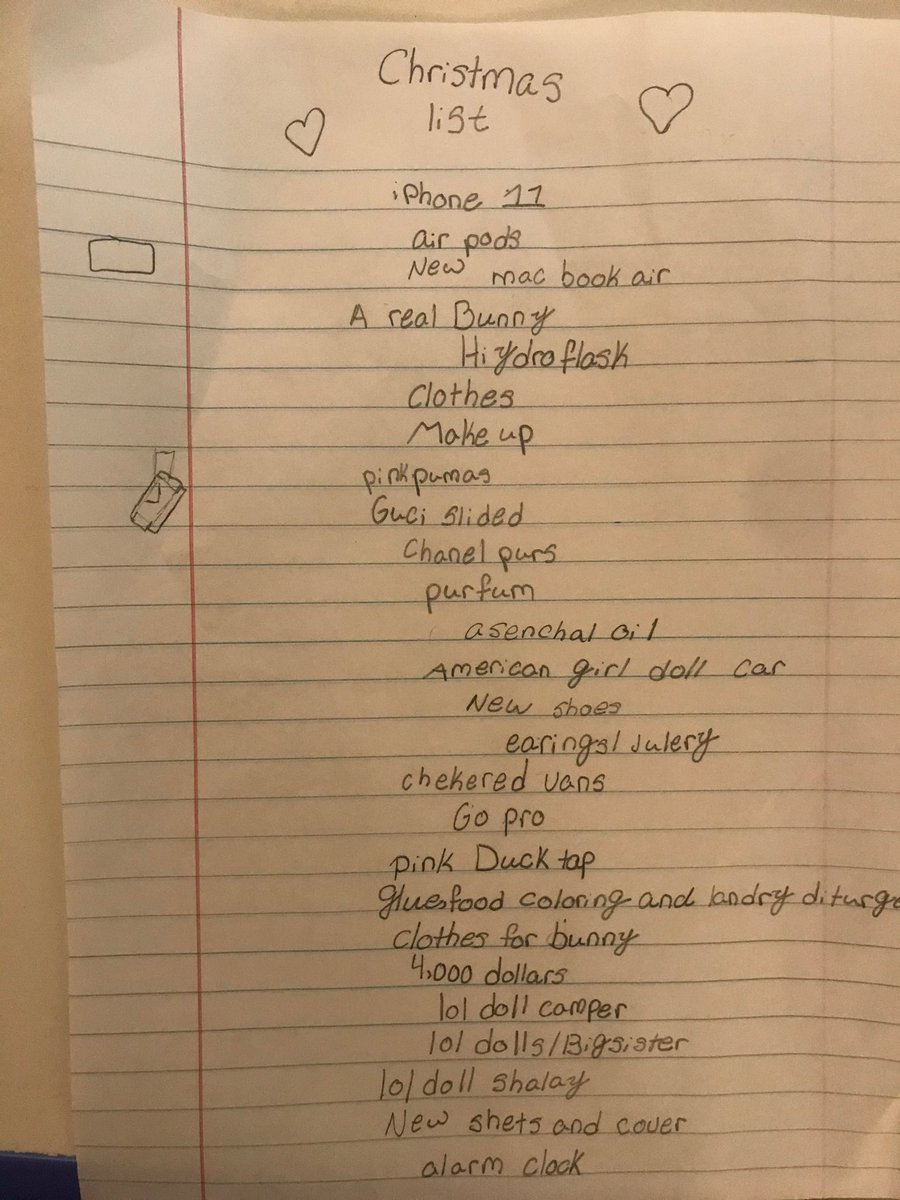 Christmas
list
iPhone 11
air pods
New mac book air
A real Bunny
Hiydroflask
Clothes
Make up
pink pumas
Guci slided
Chanel purs
purfum
asenchal oil
American girl doll car
New shoes
earings/Julery
chekered vans
Go pro
pink Duck tap
glue,food coloring and landry diturge
Clothes for bunny
4,000 dollars
lol doll camper
lol dolls/Bigsister
lol doll shalay
New shets and cover
alarm clock